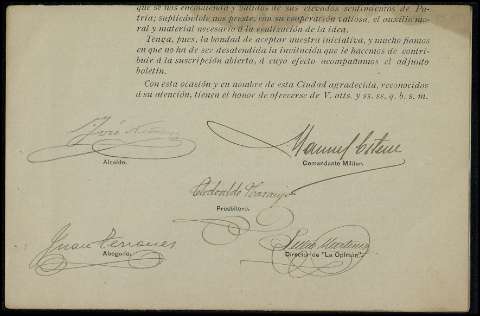 que se nos encomienda y valídos de sus elevados sentimientos de Pa-
tria; suplicándole nos preste, con su cooperación valiosa, el auxilio mo-
ral y material necesario á la realización de la idea.
Tenga, pues, la bondad de aceptar nuestra iniciativa, y mucho fiamos
en que no ha de ser desatendida la invitación que le hacemos de contri-
buir á la suscripción abierta, á cuyo efecto acompañamos el adjunto
boletín.
Con esta ocasión y en nombre de esta Ciudad agradecida, reconocidos
á su atención, tienen el honor de ofrecerse de V. atts. y ss. ss. q. b. s. m.
José
Alcalde.
Manuel
Comandante Militar.
Presbítero.
Juan
Abogado.
Martinez
Director de "La Opinión".